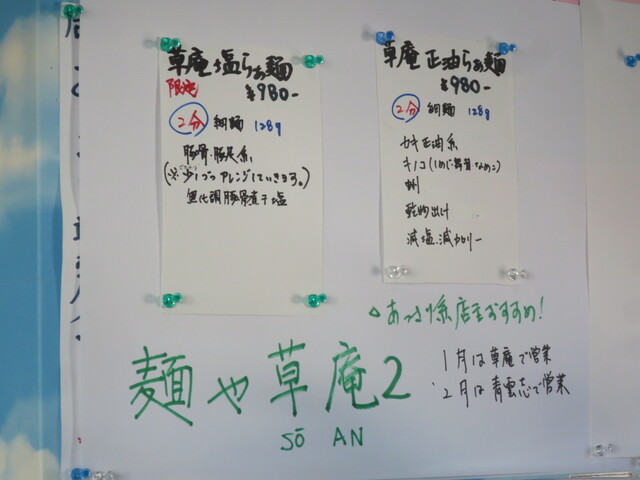 草庵塩らぁ麺
限定 ¥980-
2分 細麺 128g
豚骨・豚足系
(※少しづつアレンジしていきます。)
無化調豚骨煮干塩
草庵正油らぁ麺
¥980-
2分 細麺 128g
カキ正油系
キノコ(しめじ 舞茸 なめこ)
動物出汁
減塩、減カロリー
あっさり系店主おすすめ!
麺や草庵2
SŌ AN
1月は草庵で営業
2月は青雲志で営業